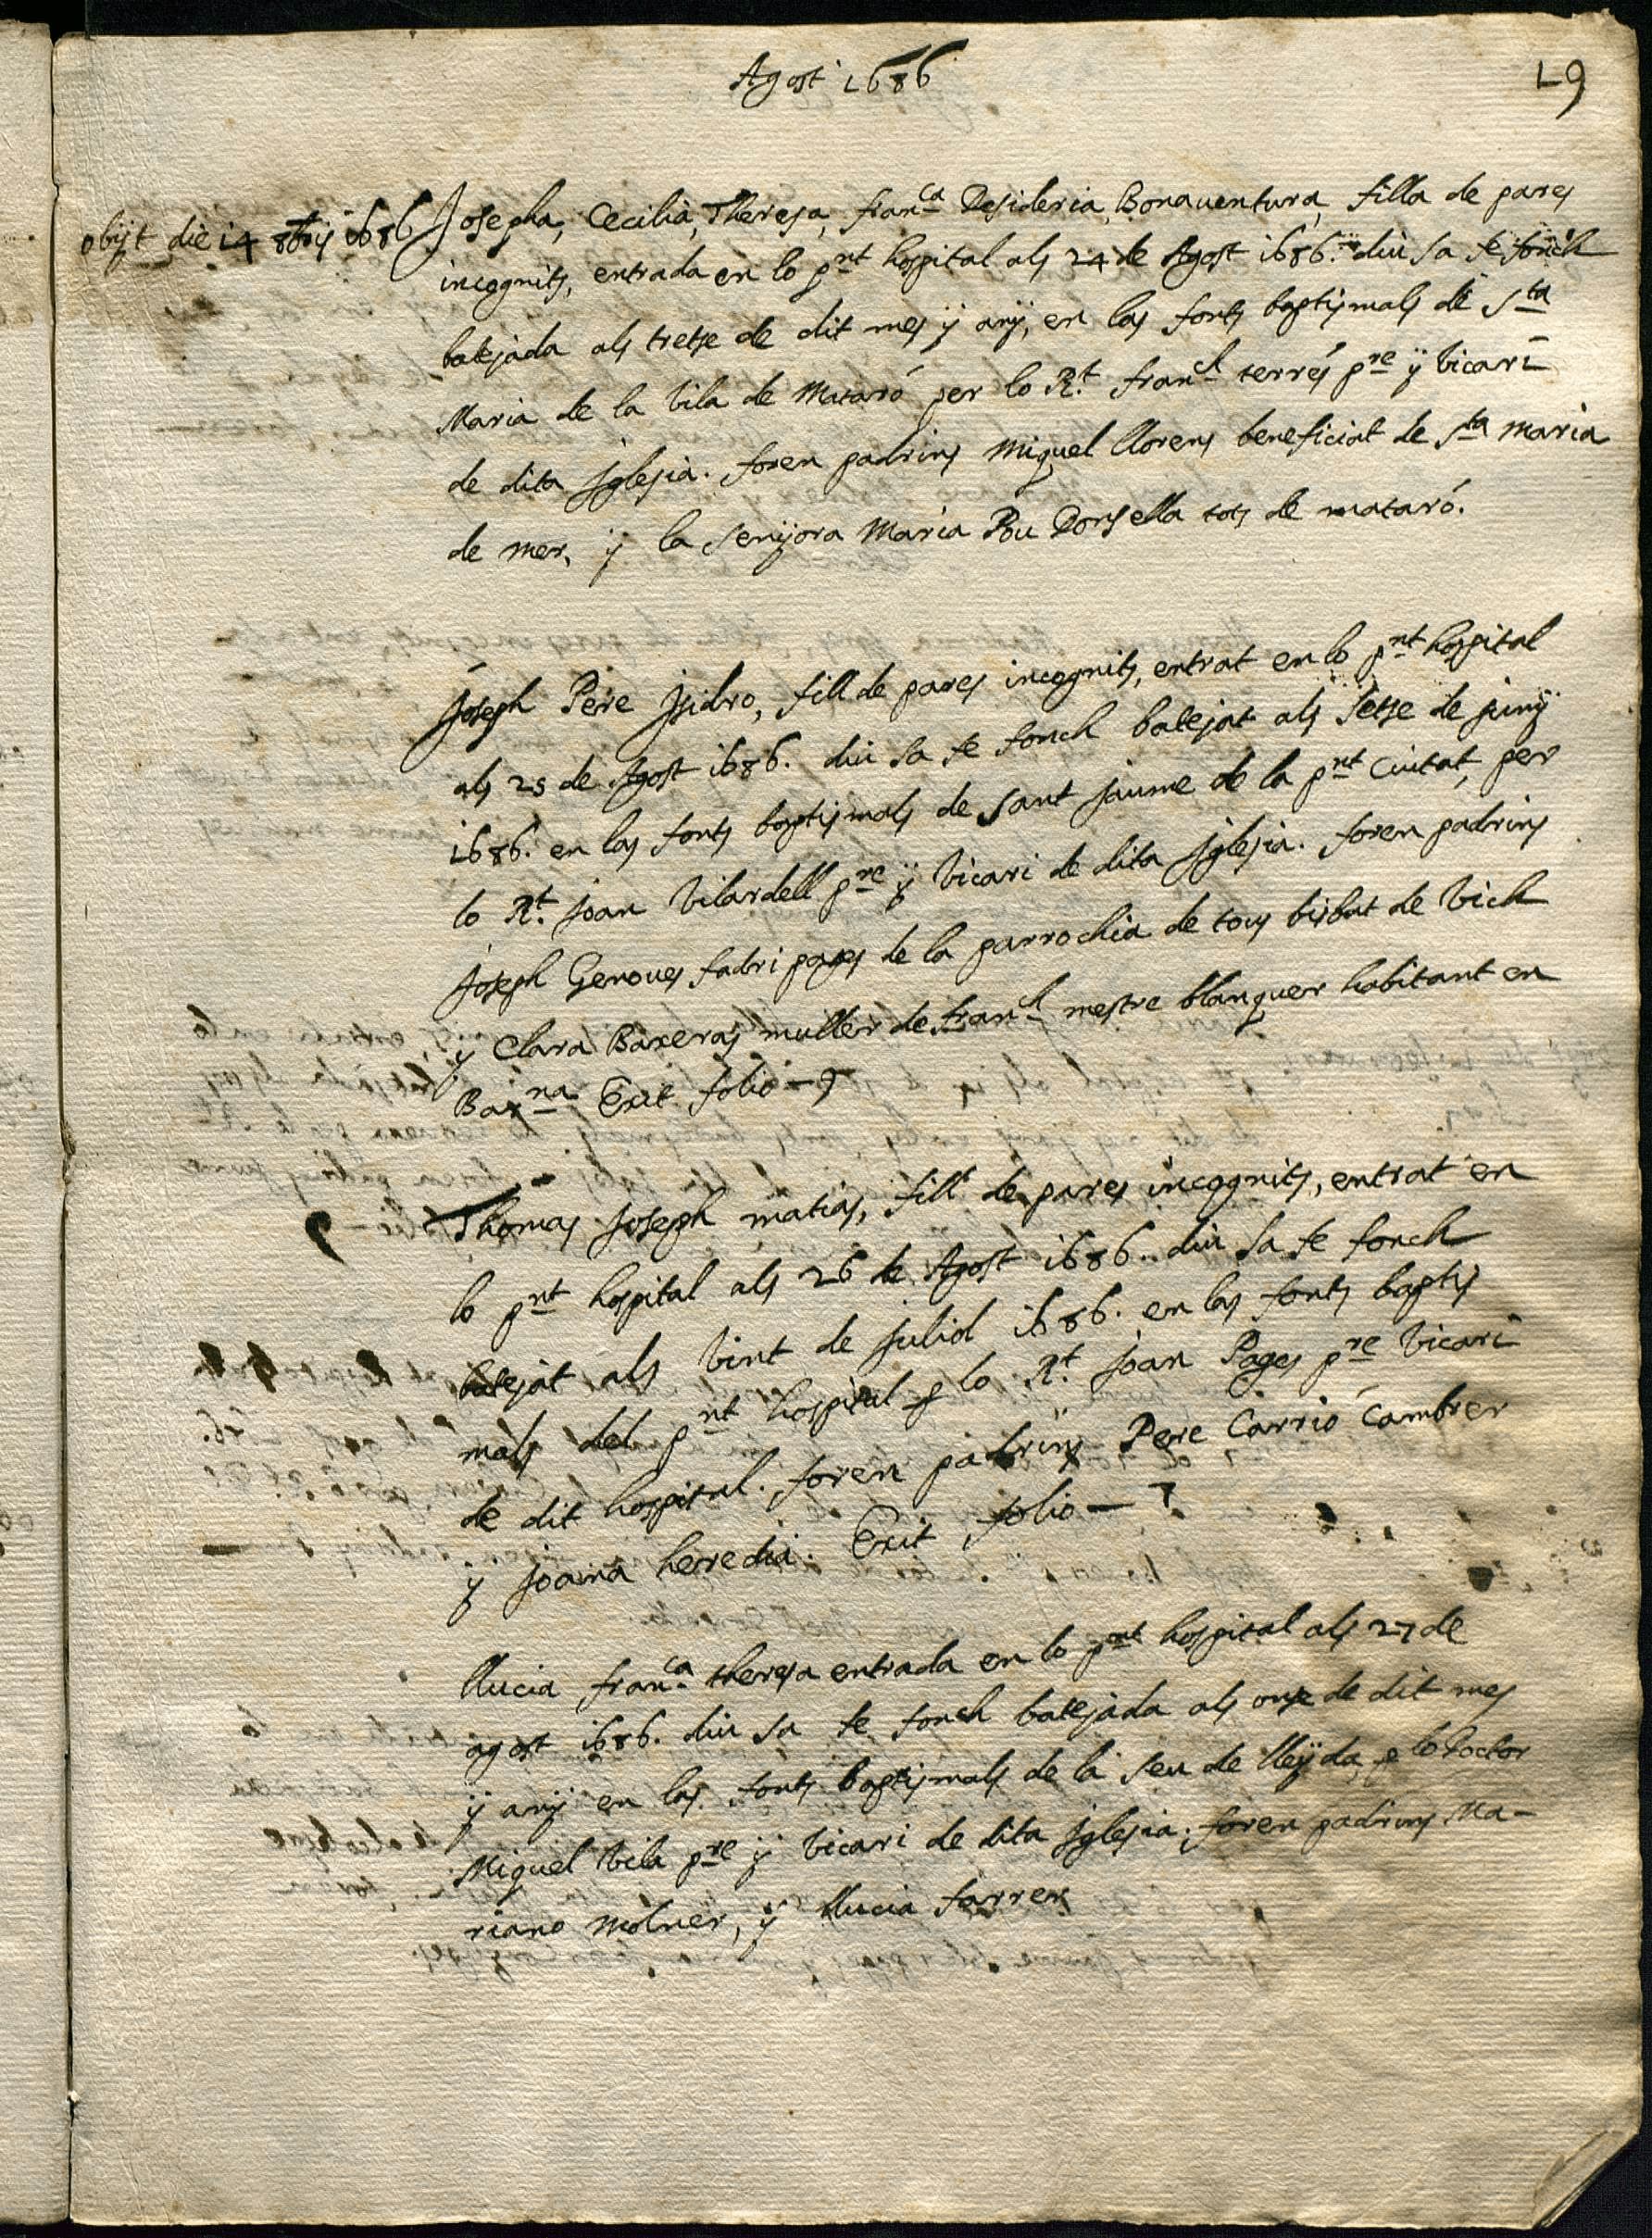 Agost 1686
19
obijt die 14 8bris 1686
Josepha, Cecilia, Theresa, fran.ca Desideria, Bonauentura, filla de pares
incognits, entrada en lo pnt hospital als 24 de Agost 1686. diu sa fe fonch
batejada als tretse de dit mes ÿ anÿ, en las fonts baptismals de Sta
Maria de la Vila de Mataró per lo Rt. franch terrés pre ÿ Vicari
de dita Jglesia. foren padrins Miquel llorens beneficiat de sta maria
de mer, ÿ la senÿora Maria Pou Donsella tots de mataró.
Joseph Pere Jsidro, fill de pares incognits, entrat en lo pnt hospital
als 25 de Agost 1686. diu sa fe fonch batejat als setse de junÿ
1686. en las fonts baptismals de sant jaume de la pnt Ciutat, per
lo Rt. joan Vilardell pre ÿ Vicari de dita Jglesia. foren padrins
Joseph Genoues fadri pages de la parrochia de tous bisbat de Vich
y Clara Baxeras muller de franch mestre blanquer habitant en
Barna Exit folio - 9
Thomas Joseph matias, fill de pares incognits, entrat en
lo pnt hospital als 26 de Agost 1686. diu sa fe fonch
batejat als Vint de juliol 1686. en las fonts baptis
mals del pnt hospital p lo Rt. joan Pages pre Vicari
de dit hospital. foren padrins Pere Carrió Cambrer
ÿ joana heredia. Exit folio - 7
llucia fran.ca theresa entrada en lo pnt hospital als 27 de
agost 1686. diu sa fe fonch batejada als onse de dit mes
ÿ anÿ en las fonts baptismals de la seu de lleÿda, p lo Doctor
Miquel Vila pre ÿ Vicari de dita Jglesia; foren padrins Ma-
riano molner, ÿ llucia farrer